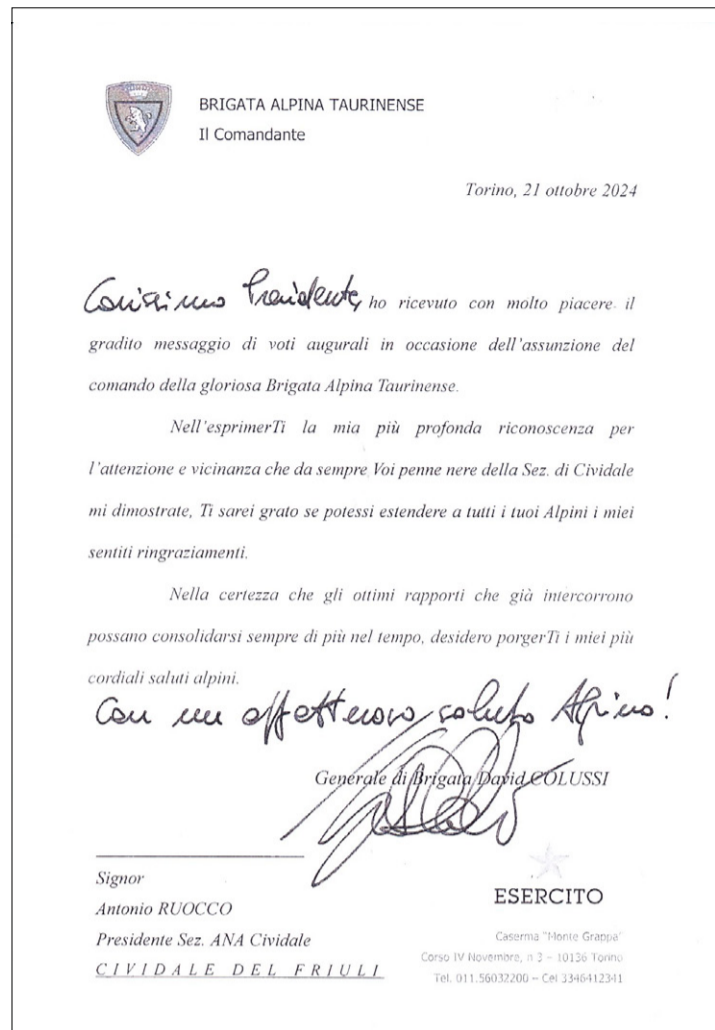 BRIGATA ALPINA TAURINENSE
Il Comandante
Torino, 21 ottobre 2024
Carissimo Presidente, ho ricevuto con molto piacere il
gradito messaggio di voti augurali in occasione dell'assunzione del
comando della gloriosa Brigata Alpina Taurinense.
Nell'esprimerTi la mia più profonda riconoscenza per
l'attenzione e vicinanza che da sempre Voi penne nere della Sez. di Cividale
mi dimostrate, Ti sarei grato se potessi estendere a tutti i tuoi Alpini i miei
sentiti ringraziamenti.
Nella certezza che gli ottimi rapporti che già intercorrono
possano consolidarsi sempre di più nel tempo, desidero porgerTi i miei più
cordiali saluti alpini.
Con un affettuoso saluto Alpino!
Generale di Brigata David COLUSSI
Signor
Antonio RUOCCO
Presidente Sez. ANA Cividale
CIVIDALE DEL FRIULI
ESERCITO
Caserma "Monte Grappa"
Corso IV Novembre, n 3 – 10136 Torino
Tel. 011.56032200 – Cel 3346412341